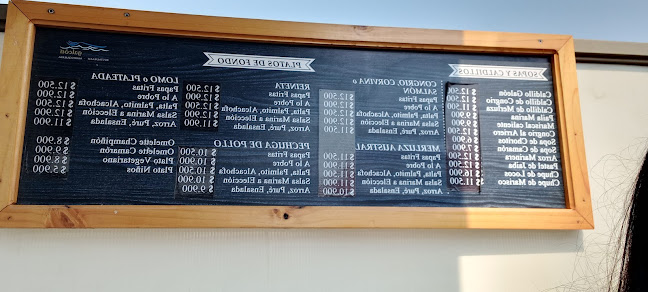 SOPAS Y CALDILLOS
Caldillo Galeón $ 12.500
Caldillo Congrio
Caldillo de Marisco $ 11.500
Paila Marina $ 11.500
Mariscal caliente
Congrio al Arriero
Sopa Choritos
Sopa de Camarón $ 7.900
Arroz Marinera $ 11.500
Pastel de Jaiba $ 11.500
Chupe de Locos $ 16.900
Chupe de Marisco $ 11.500
PLATOS DE FONDO
CONGRIO, CORVINA o
SALMON
Papas Fritas $ 12.500
A lo Pobre $ 12.500
Palta, Palmito, Alcachofa $ 12.500
Salsa Marina a Elección $ 12.900
Arroz, Puré, Ensalada $ 11.900
MERLUZA AUSTRAL
Papas Fritas $ 11.500
A lo Pobre $ 11.500
Palta, Palmito, Alcachofa $ 11.500
Salsa Marina a Elección $ 11.900
Arroz, Puré, Ensalada $ 10.900
REINETA
Papas Fritas $ 12.500
A lo Pobre $ 12.500
Palta, Palmito, Alcachofa $ 12.500
Salsa Marina a Elección $ 12.900
Arroz, Puré, Ensalada $ 11.900
PECHUGA DE POLLO
Papas Fritas $ 10.500
A lo Pobre $ 10.500
Palta, Palmito, Alcachofa $ 10.500
Salsa Marina a Elección $ 10.900
Arroz, Puré, Ensalada $ 9.900
galeón
LOMO o PLATEADA
Papas Fritas $ 12.500
A lo Pobre $ 12.500
Palta, Palmito, Alcachofa $ 12.500
Salsa Marina a Elección $ 12.900
Arroz, Puré, Ensalada $ 11.900
Omelette Champiñón $ 8.900
Omelette Camarón $ 9.900
Plato Vegetariano $ 8.900
Plato Niños $ 5.900